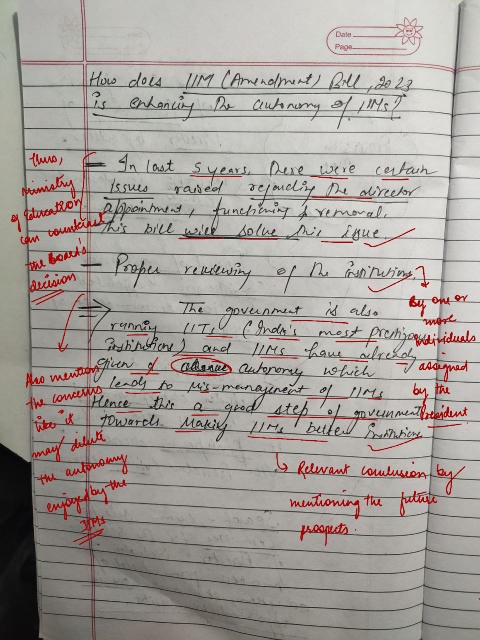 Date
Page
How does IIM (Amendment) Bill, 2023
is enhancing the autonomy of IIMs?
In last 5 years, there were certain
issues raised regarding the director
appointment, functioning & removal.
this bill will solve this issue.
Thus,
ministry
of Education
can counteract
the Board's
decision
Proper reviewing of the institutions.
By one or
more
individuals
assigned
by the
President
The government is also
running IITs (India's most prestigious
institutions) and IIMs have already
given autonomy which
leads to mis-management of IIMs
Hence this a good step of government
towards making IIMs better institutions
Also mention
the concerns
like it
may dilute
the autonomy
enjoyed by the
IIMs
Relevant conclusion by
mentioning the future
prospects.